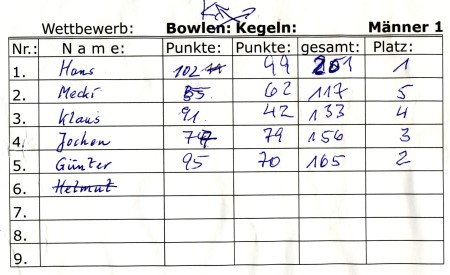 Wettbewerb: Bowlen: Kegeln: Männer 1
Nr.: Name: Punkte: Punkte: gesamt: Platz:
1. Hans 102 99 201 1
2. Mecki 62 117 5
3. Klaus 91 42 133 4
4. Jochen 79 156 3
5. Günter 95 70 165 2
6. Helmut
7.
8.
9.